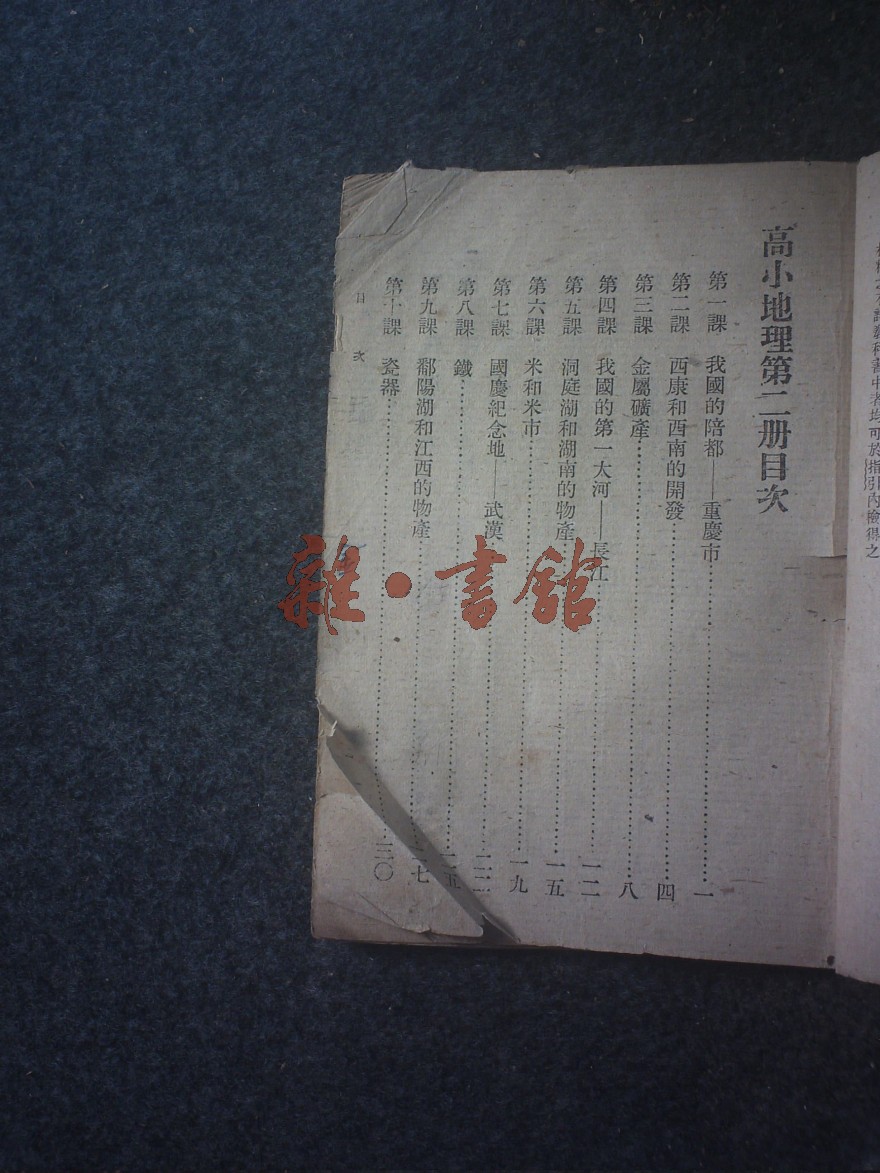 高小地理第二册目次
第一課 我國的陪都——重慶市 一
第二課 西康和西南的開發 四
第三課 金屬礦產 八
第四課 我國的第一大河——長江 一二
第五課 洞庭湖和湖南的物產 一五
第六課 米和米市 一九
第七課 國慶紀念地——武漢 二二
第八課 鐵 二五
第九課 鄱陽湖和江西的物產 二七
第十課 瓷器 三〇
目 次
雜·書館